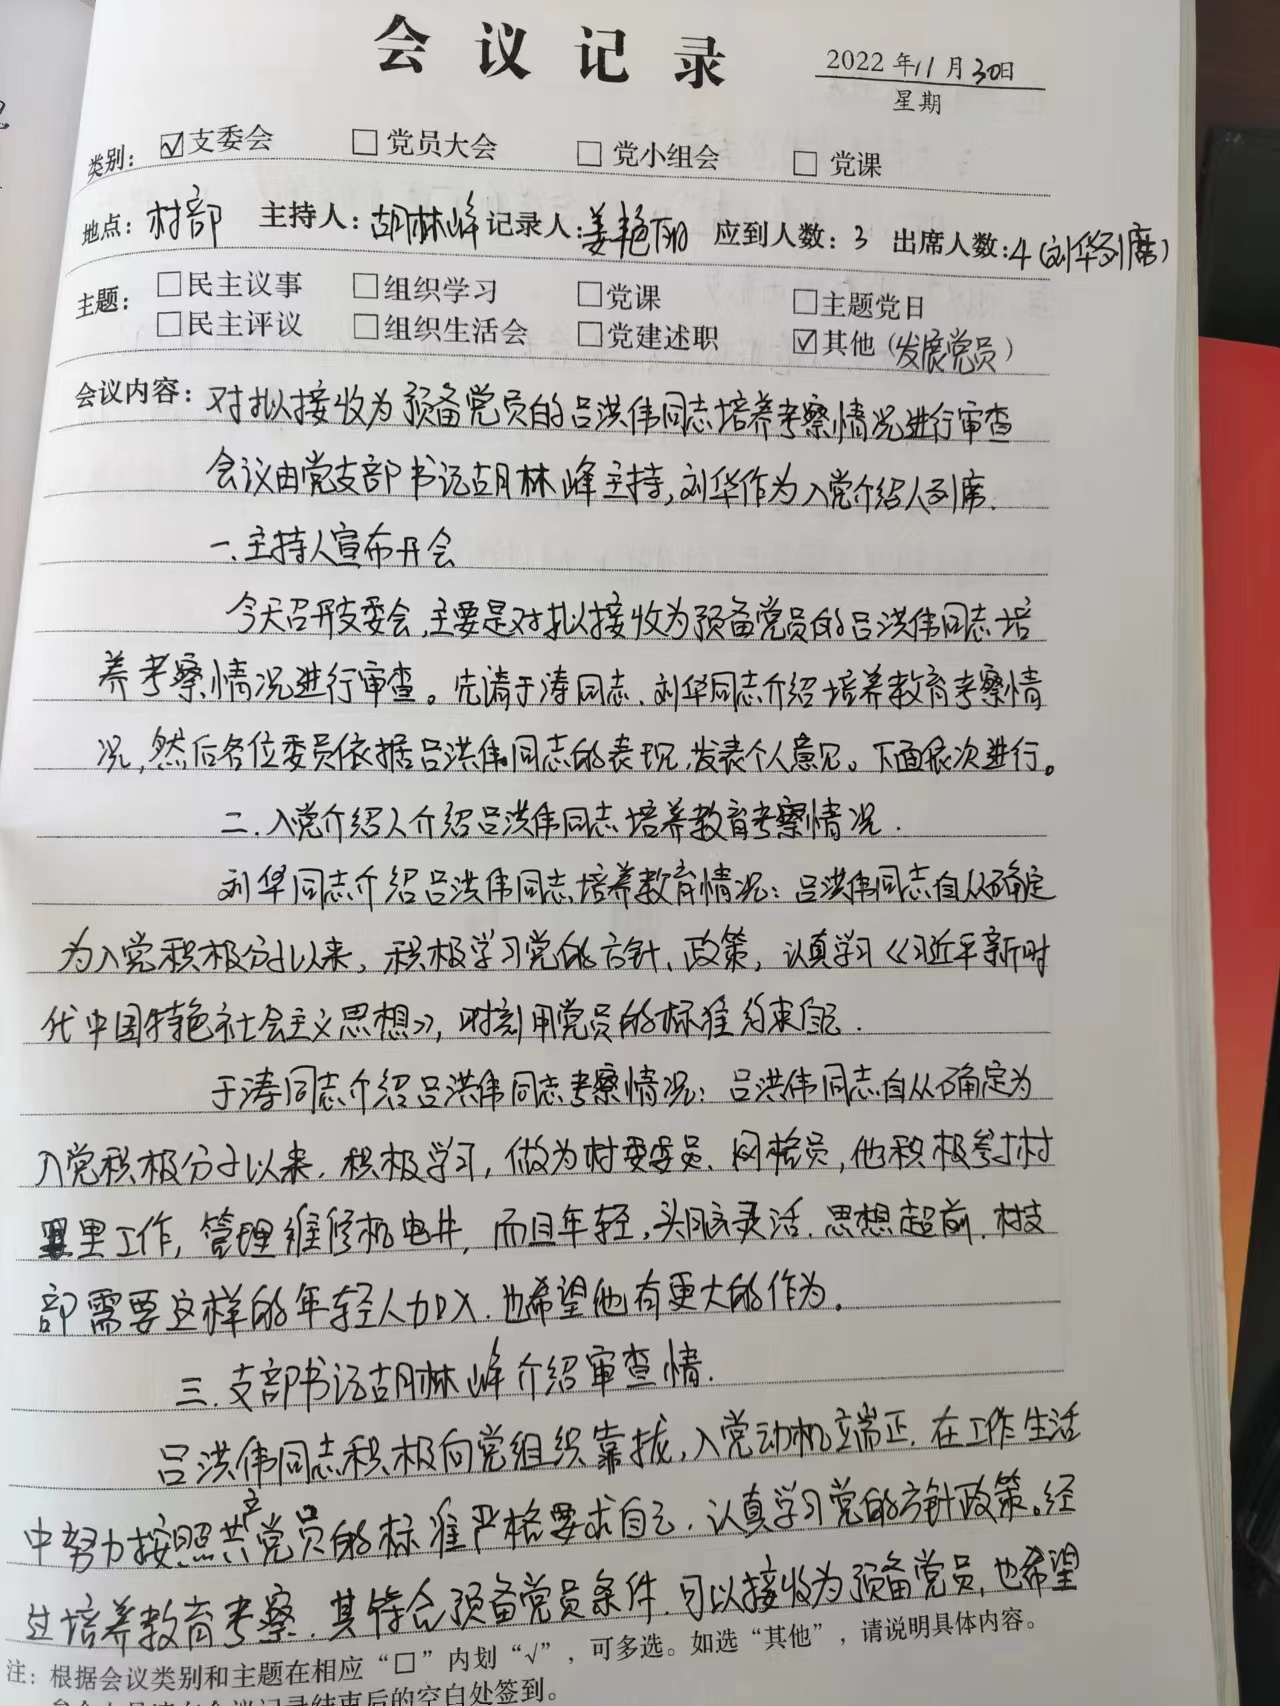 会议记录
2022年11月30日
星期
类别：☑支委会 □党员大会 □党小组会 □党课
地点：村部 主持人：胡林峰 记录人：姜艳丽 应到人数：3 出席人数：4（刘华列席）
主题：□民主议事 □组织学习 □党课 □主题党日
□民主评议 □组织生活会 □党建述职 ☑其他（发展党员）
会议内容：对拟接收为预备党员的吕洪伟同志培养考察情况进行审查
会议由党支部书记胡林峰主持，刘华作为入党介绍人列席.
一、主持人宣布开会
今天召开支委会，主要是对拟接收为预备党员的吕洪伟同志培
养考察情况进行审查。先请于涛同志、刘华同志介绍培养教育考察情
况，然后各位委员依据吕洪伟同志的表现，发表个人意见。下面依次进行。
二.入党介绍人介绍吕洪伟同志培养教育考察情况.
刘华同志介绍吕洪伟同志培养教育情况：吕洪伟同志自从确定
为入党积极分子以来，积极学习党的方针、政策，认真学习《习近平新时
代中国特色社会主义思想》，时刻用党员的标准约束自己.
于涛同志介绍吕洪伟同志考察情况：吕洪伟同志自从确定为
入党积极分子以来，积极学习，做为村委委员、网格员，他积极参村村
里工作，管理维修机电井，而且年轻，头脑灵活.思想超前.村支
部需要这样的年轻人加入.也希望他有更大的作为。
三.支部书记胡林峰介绍审查情.
吕洪伟同志积极向党组织靠拢，入党动机端正.在工作生活
中努力按照共产党员的标准严格要求自己.认真学习党的方针政策。经
过培养教育考察.其符合预备党员条件.可以接收为预备党员，也希望
注：根据会议类别和主题在相应“□”内划“√”，可多选。如选“其他”，请说明具体内容。
会议记录结束后的空白处签到。